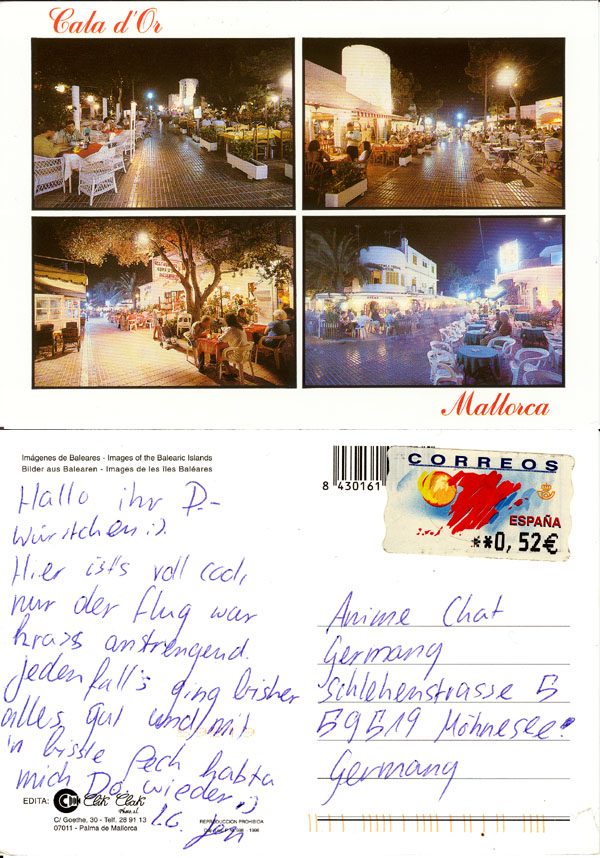 Cala d'Or
Mallorca
Imágenes de Baleares - Images of the Balearic Islands
Bilder aus Balearen - Images de les îles Baléares
8 430161
CORREOS
ESPAÑA
**0,52€
Hallo ihr P.-
Würstchen :).
Hier ist's voll cool,
nur der Flug war
krass anstrengend.
Jedenfall's ging bisher
alles gut und mit
'n bissle Pech habta
mich Do. wieder :)
L.G. Jen
Anime Chat
Germany
Schlehenstrasse 5
59519 Möhnesee!
Germany
EDITA: Clik Clak
C/ Goethe, 30 - Telf. 28 91 13
07011 - Palma de Mallorca
REPRODUCCION PROHIBIDA